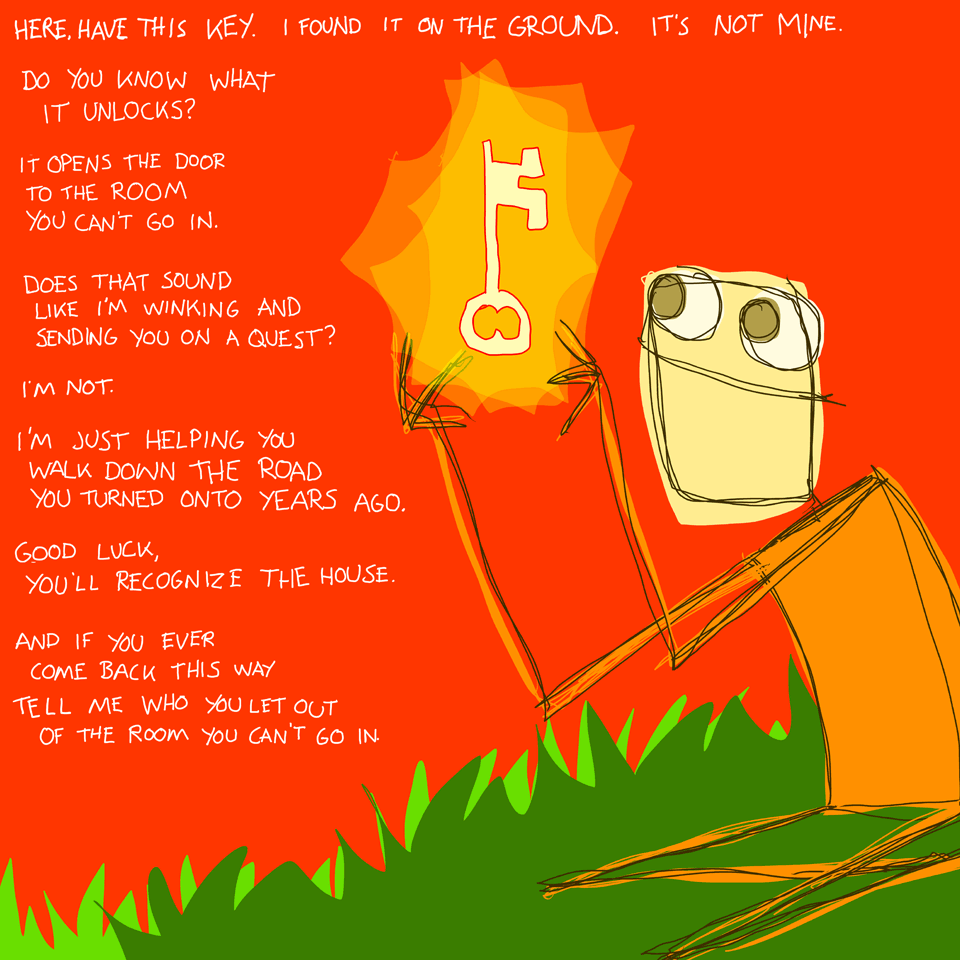 HERE, HAVE THIS KEY. I FOUND IT ON THE GROUND. IT'S NOT MINE.
DO YOU KNOW WHAT
IT UNLOCKS?
IT OPENS THE DOOR
TO THE ROOM
YOU CAN'T GO IN.
DOES THAT SOUND
LIKE I'M WINKING AND
SENDING YOU ON A QUEST?
I'M NOT.
I'M JUST HELPING YOU
WALK DOWN THE ROAD
YOU TURNED ONTO YEARS AGO.
GOOD LUCK,
YOU'LL RECOGNIZE THE HOUSE.
AND IF YOU EVER
COME BACK THIS WAY
TELL ME WHO YOU LET OUT
OF THE ROOM YOU CAN'T GO IN.